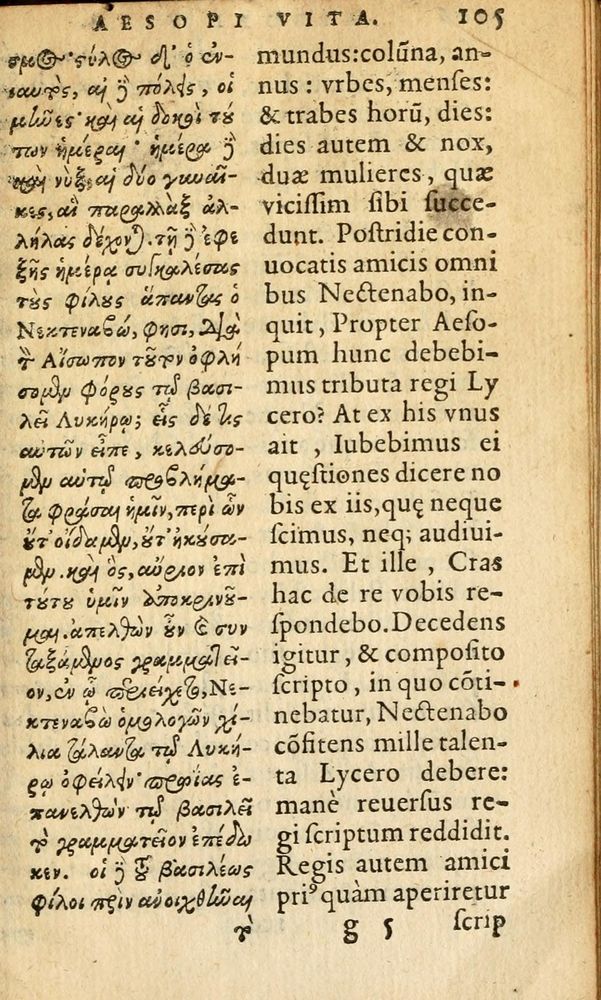 AESOPI VITA. 105
σμος· στύλος δὲ ὁ ἐν-
ιαυτὸς, αἱ δὲ πόλεις, οἱ
μῆνες· καὶ αἱ δοκοὶ τού
των ἡμέραι· ἡμέρα δὲ
καὶ νὺξ, αἱ δύο γυναῖ-
κες, αἳ παραλλὰξ ἀλ-
λήλας δέχονται. τῇ δὲ ἐφε
ξῆς ἡμέρᾳ συγκαλέσας
τοὺς φίλους ἅπαντας ὁ
Νεκτεναβώ, φησι, Διὰ
τὸν Αἴσωπον τοῦτον ὀφλή
σομεν φόρους τῷ βασι-
λεῖ Λυκήρῳ; εἷς δέ τις
αὐτῶν εἶπε, κελεύσο-
μεν αὐτῷ προβλήμα-
τα φράσαι ἡμῖν, περὶ ὧν
οὔτ' οἴδαμεν, οὔτ' ἠκούσα-
μεν. καὶ ὃς, αὔριον ἐπὶ
τούτου ὑμῖν ἀποκρινοῦ-
μαι. ἀπελθὼν οὖν καὶ συν
ταξάμενος γραμματεῖ-
ον, ἐν ᾧ περιείχετο, Νε-
κτεναβὼ ὁμολογῶν χί-
λια τάλαντα τῷ Λυκή-
ρῳ ὀφείλειν· πρωΐας ἐ-
πανελθὼν τῷ βασιλεῖ
τὸ γραμματεῖον ἐπέδω
κεν. οἱ δὲ τοῦ βασιλέως
φίλοι πρὶν ἀνοιχθῆναι
τὸ
mundus: colūna, an-
nus : vrbes, menses:
& trabes horū, dies:
dies autem & nox,
duæ mulieres, quæ
vicissim sibi succe-
dunt. Postridie con-
uocatis amicis omni
bus Nectenabo, in-
quit, Propter Aeso-
pum hunc debebi-
mus tributa regi Ly
cero? At ex his vnus
ait , Iubebimus ei
quęstiones dicere no
bis ex iis, quę neque
scimus, neq; audiui-
mus. Et ille , Cras
hac de re vobis re-
spondebo. Decedens
igitur, & composito
scripto, in quo cōti-
nebatur, Nectenabo
cōfitens mille talen-
ta Lycero debere:
manè reuersus re-
gi scriptum reddidit.
Regis autem amici
priꝰ quàm aperiretur
g 5 scrip